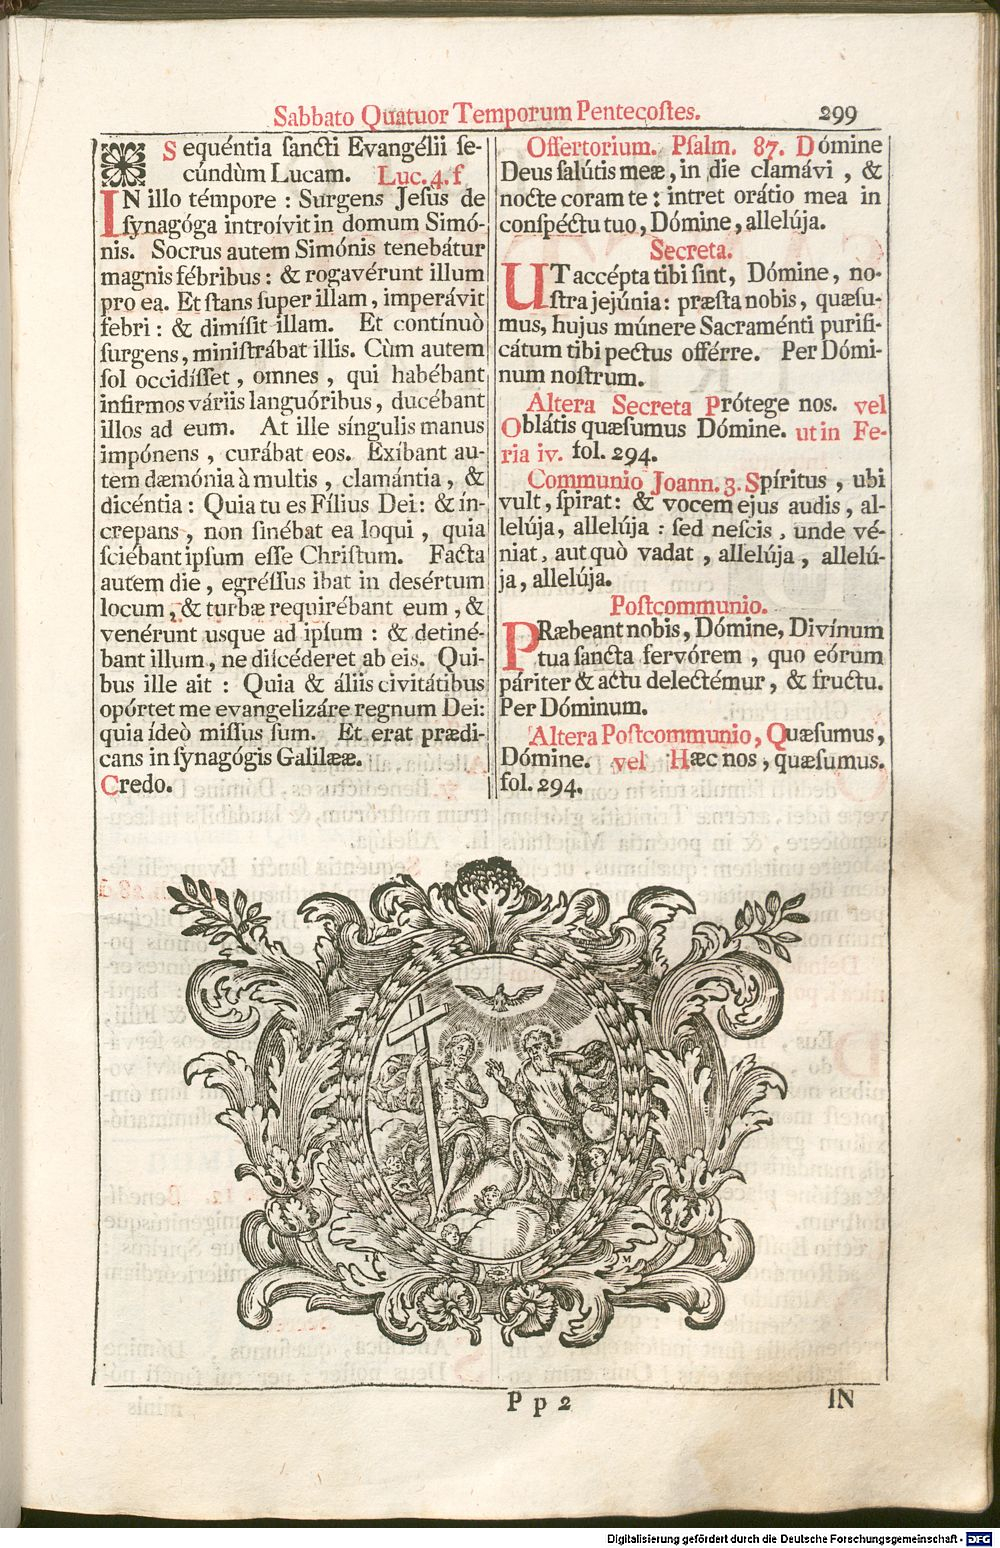 Sabbato Quatuor Temporum Pentecoſtes. 299
Sequéntia ſancti Evangélii ſe-
cúndùm Lucam. Luc. 4. f
IN illo témpore : Surgens Jeſus de
ſynagóga introívit in domum Simó-
nis. Socrus autem Simónis tenebátur
magnis fébribus : & rogavérunt illum
pro ea. Et ſtans ſuper illam, imperávit
febri : & dimíſit illam. Et contínuò
ſurgens, miniſtrábat illis. Cùm autem
ſol occidíſſet, omnes, qui habébant
infirmos váriis languóribus, ducébant
illos ad eum. At ille síngulis manus
impónens, curábat eos. Exíbant au-
tem dæmónia à multis, clamántia, &
dicéntia : Quia tu es Fílius Dei : & ín-
crepans, non ſinébat ea loqui, quia
ſciébant ipſum eſſe Chriſtum. Facta
autem die, egréſſus ibat in desértum
locum, & turbæ requirébant eum, &
venérunt usque ad ipſum : & detiné-
bant illum, ne diſcéderet ab eis. Qui-
bus ille ait : Quia & áliis civitátibus
opórtet me evangelizáre regnum Dei:
quia ídeò miſſus ſum. Et erat prædi-
cans in ſynagógis Galilææ.
Credo.
Offertorium. Pſalm. 87. Dómine
Deus ſalútis meæ, in die clamávi, &
nocte coram te : intret orátio mea in
conſpéctu tuo, Dómine, allelúja.
Secreta.
UT accépta tibi ſint, Dómine, no-
ſtra jejúnia : præſta nobis, quæſu-
mus, hujus múnere Sacraménti purifi-
cátum tibi pectus offérre. Per Dómi-
num noſtrum.
Altera Secreta Prótege nos. vel
Oblátis quæſumus Dómine. ut in Fe-
ria iv. fol. 294.
Communio Joann. 3. Spíritus, ubi
vult, ſpirat : & vocem ejus audis, al-
lelúja, allelúja : ſed neſcis, unde vé-
niat, aut quò vadat, allelúja, allelú-
ja, allelúja.
Poſtcommunio.
PRæbeant nobis, Dómine, Divínum
tua ſancta fervórem, quo eórum
páriter & actu delectémur, & fructu.
Per Dóminum.
Altera Poſtcommunio, Quæſumus,
Dómine. vel Hæc nos, quæſumus.
fol. 294.
I M
P p 2 IN
Digitalisierung gefördert durch die Deutsche Forschungsgemeinschaft - DFG